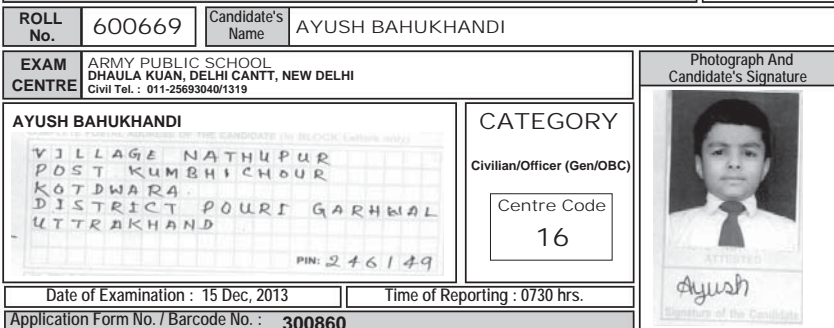 ROLL No. 600669 Candidate's Name AYUSH BAHUKHANDI
EXAM CENTRE
ARMY PUBLIC SCHOOL
DHAULA KUAN, DELHI CANTT, NEW DELHI
Civil Tel. : 011-25693040/1319
Photograph And
Candidate's Signature
AYUSH BAHUKHANDI
COMPLETE POSTAL ADDRESS OF THE CANDIDATE (in BLOCK Letters only)
VILLAGE NATHUPUR
POST KUMBHICHOUR
KOTDWARA.
DISTRICT POURI GARHWAL
UTTRAKHAND
PIN: 246149
CATEGORY
Civilian/Officer (Gen/OBC)
Centre Code
16
ATTESTED
Ayush
Signature of the Candidate
Date of Examination : 15 Dec, 2013
Time of Reporting : 0730 hrs.
Application Form No. / Barcode No. : 300860